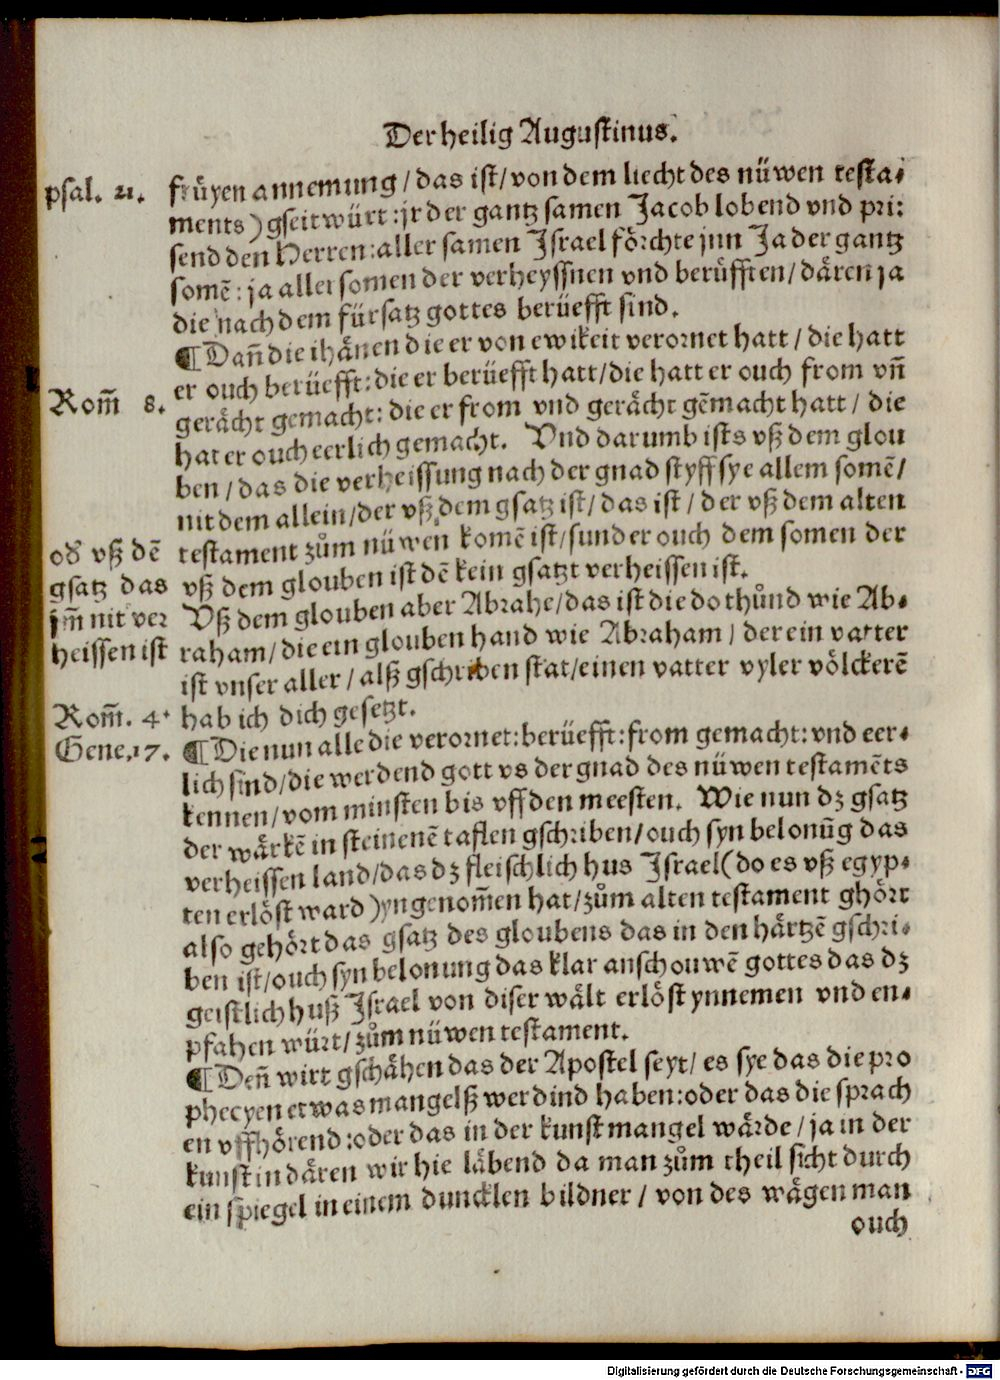 Der heilig Augustinus.
psal. 21. früyen annemung / das ist / von dem liecht des nüwen testa⸗
ments) gseit würt : jr der gantz samen Jacob lobend vnd pri:
send den Herren : aller samen Israel förchte jnn Ja der gantz
somē : ja aller somen der verheyssnen vnd berüfften / dären ja
die nach dem fürsatz gottes berüefft sind.
¶ Dañ die ihänen die er von ewikeit verornet hatt / die hatt
Rom̃ 8. er ouch berüefft : die er berüefft hatt / die hatt er ouch from vñ
gerächt gemacht : die er from vnd gerächt gēmacht hatt / die
hat er ouch eerlich gemacht. Vnd darumb ists vß dem glou
ben / das die verheissung nach der gnad styff sye allem somē /
nit dem allein / der vß dem gsatz ist / das ist / der vß dem alten
od̕ vß dē testament zům nüwen komē ist / sunder ouch dem somen der
gsatz das vß dem glouben ist dē kein gsatzt verheissen ist.
jm̃ nit ver Vß dem glouben aber Abrahe / das ist die do thůnd wie Ab⸗
heissen ist raham / die ein glouben hand wie Abraham / der ein vatter
ist vnser aller / alß gschriben stat / einen vatter vyler völckerē
Rom̃. 4. hab ich dich gesetzt.
Gene. 17. ¶ Die nun alle die verornet : berüefft : from gemacht : vnd eer⸗
lich sind / die werdend gott vs der gnad des nüwen testamēts
kennen / vom minsten bis vff den meesten. Wie nun dz gsatz
der wärkē in steinenē taflen gschriben / ouch syn belonūg das
verheissen land / das dz fleischlich hus Israel (do es vß egyp⸗
ten erlöst ward) yngenom̃en hat / zům alten testament ghört
also gehört das gsatz des gloubens das in den härtzē gschri⸗
ben ist / ouch syn belonung das klar anschouwē gottes das dz
geistlich huß Israel von diser wält erlöst ynnemen vnd en⸗
pfahen würt / zům nüwen testament.
¶ Deñ wirt gschähen das der Apostel seyt / es sye das die pro
phecyen etwas mangelß werdind haben : oder das die sprach
en vffhörend : oder das in der kunst mangel wärde / ja in der
kunst in dären wir hie läbend da man zům theil sicht durch
ein spiegel in einem duncklen bildner / von des wägen man
ouch
Digitalisierung gefördert durch die Deutsche Forschungsgemeinschaft - DFG